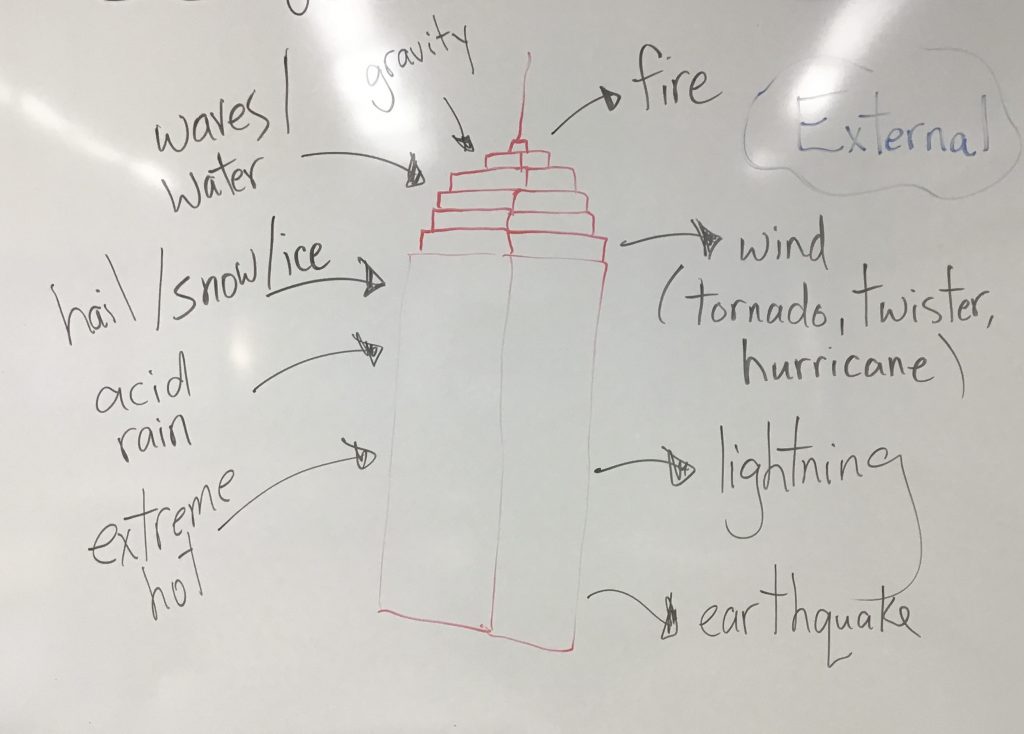 gravity
fire
External
waves/
water
hail/snow/ice
wind
(tornado, twister,
hurricane)
acid
rain
lightning
extreme
hot
earthquake